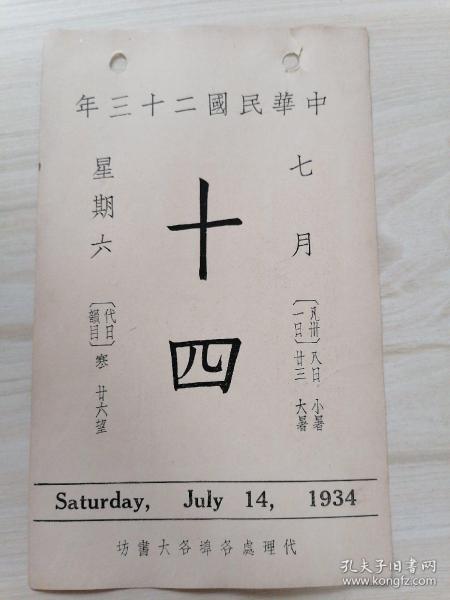 中華民國二十三年
七月
十四
星期六
〔凡卅一日〕
八日 小暑
廿三 大暑
〔代日韻目〕
寒 廿六望
Saturday, July 14, 1934
代理處各埠各大書坊
孔夫子旧书网
www.kongfz.com